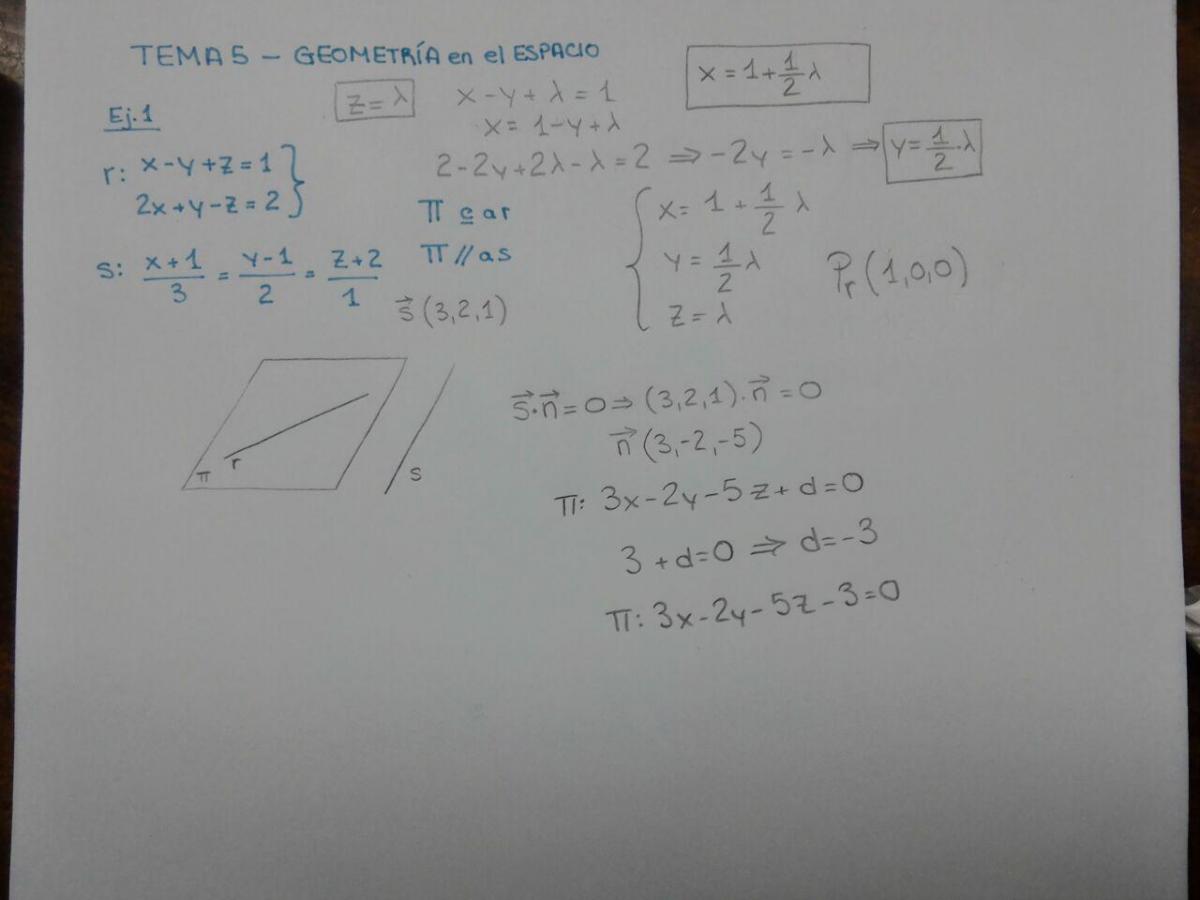 TEMA 5 – GEOMETRÍA en el ESPACIO
Ej. 1
r: x-y+z=1
2x+y-z=2 }
s: x+1/3 = y-1/2 = z+2/1
z=λ
x-y+λ=1
x=1-y+λ
2-2y+2λ-λ=2 ⇒ -2y=-λ ⇒ y=1/2·λ
x=1+1/2 λ
π ⊆ a r
π // a s
s⃗ (3,2,1)
{ x=1+1/2 λ
y=1/2 λ
z=λ
Pr (1,0,0)
π
r
s
s⃗·n⃗=0 ⇒ (3,2,1)·n⃗=0
n⃗ (3,-2,-5)
π: 3x-2y-5z+d=0
3+d=0 ⇒ d=-3
π: 3x-2y-5z-3=0